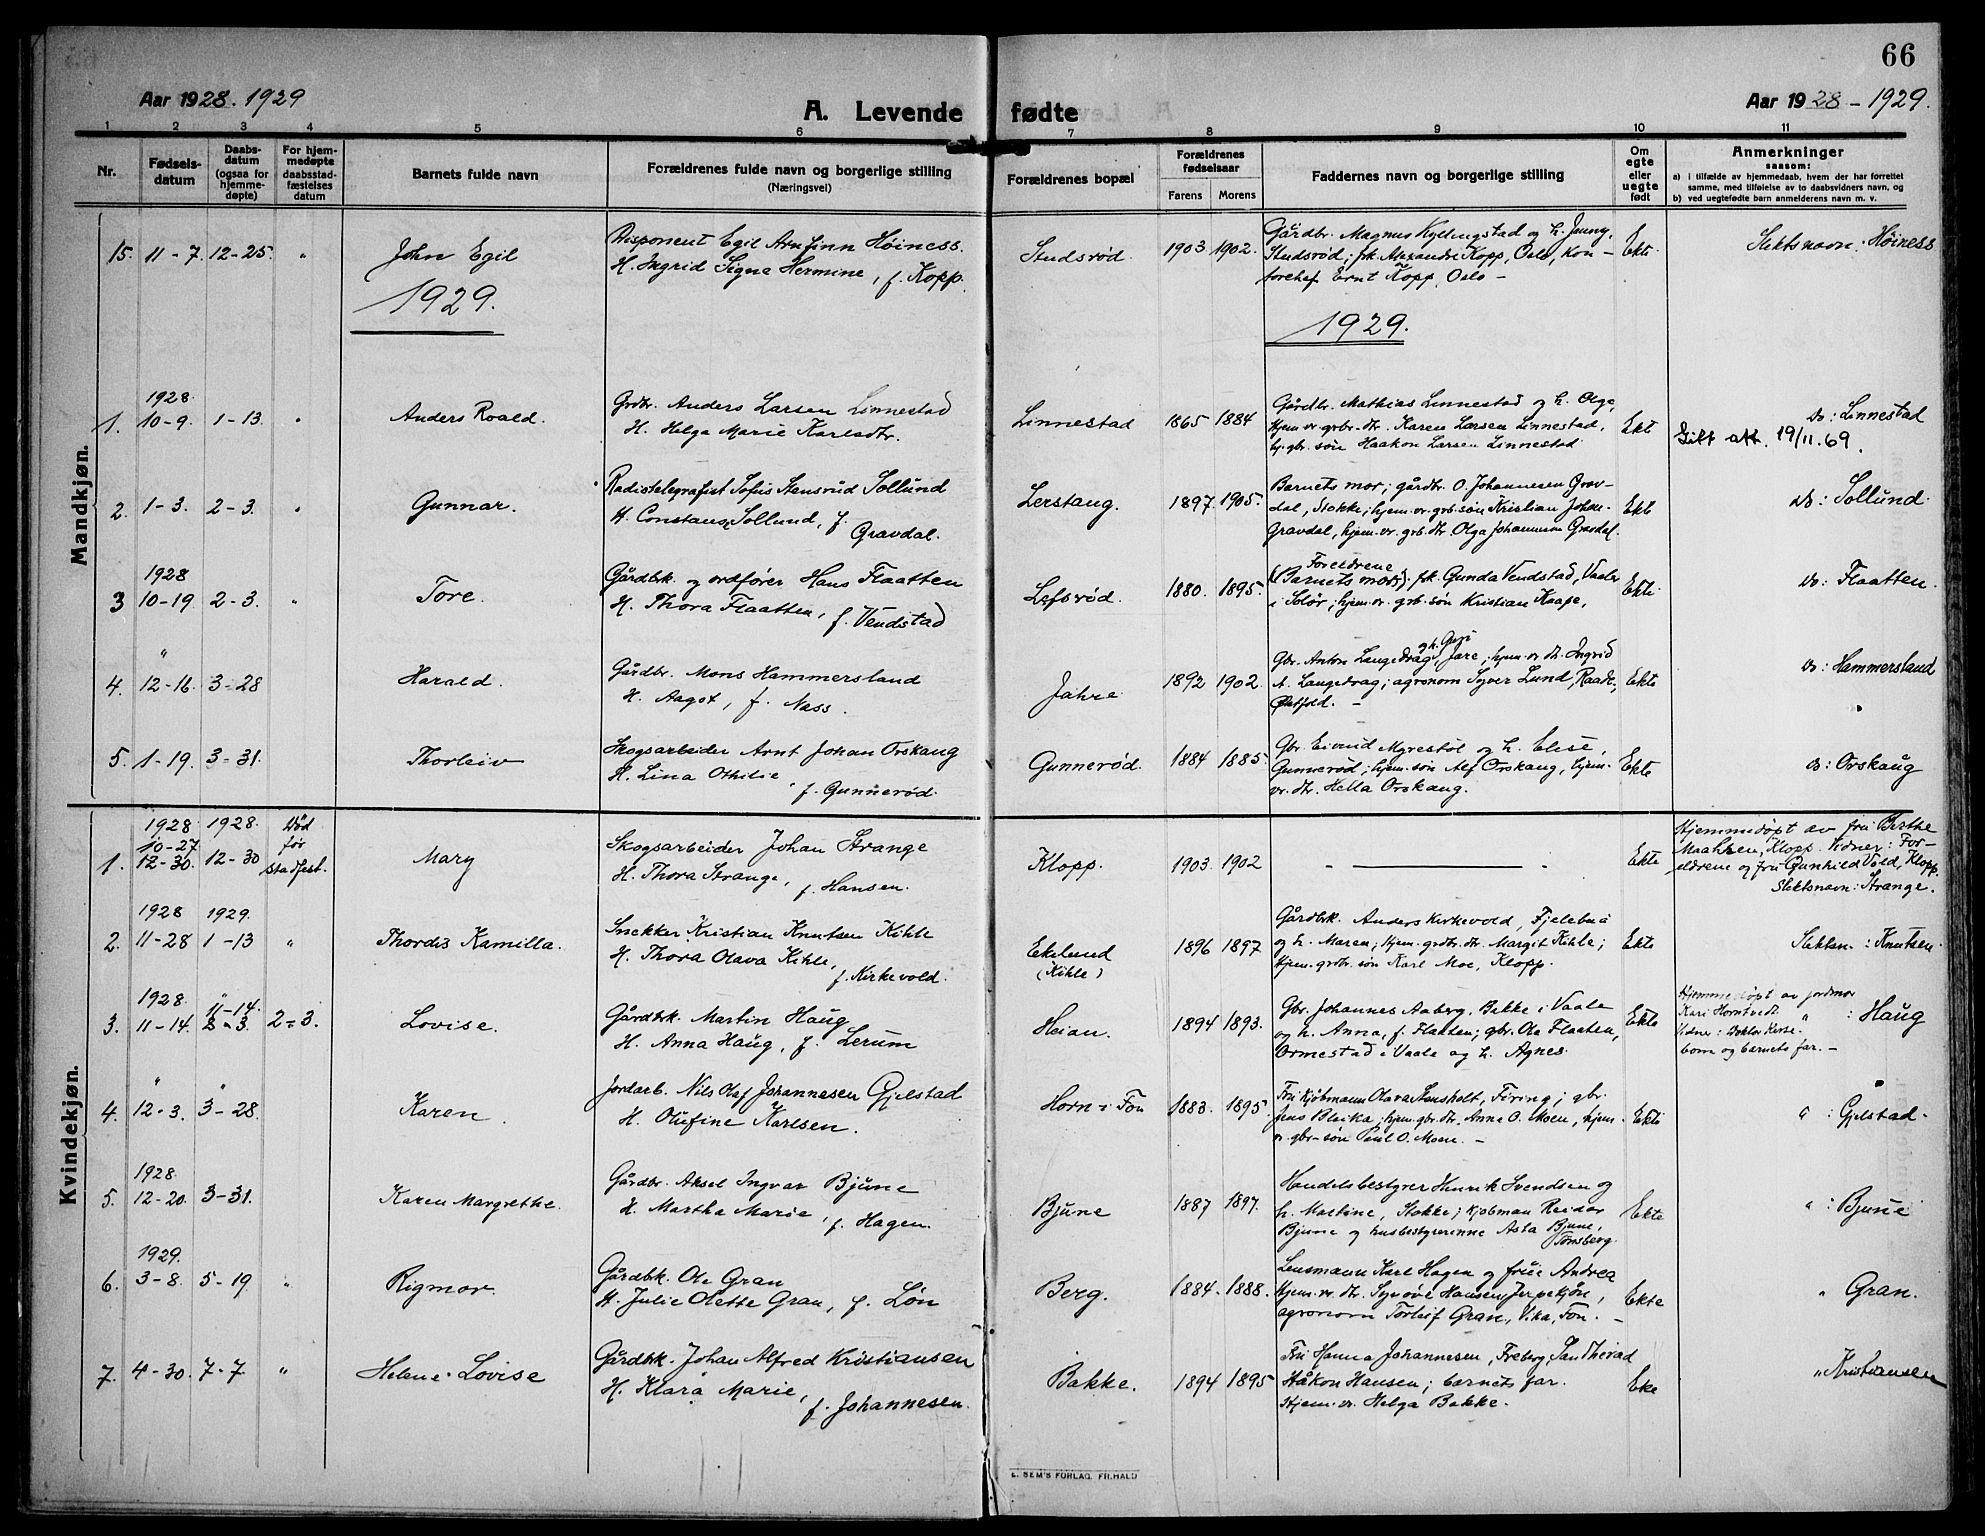 66
Aar 1928. 1929
A. Levende fødte
Aar 1928 - 1929.
1 2 3 4 5 6 7 8 9 10 11
Nr.
Fødsels-
datum
Daabs-
datum
(ogsaa for
hjemme-
døpte)
For hjem-
medøpte
daabsstad-
fæstelses
datum
Barnets fulde navn
Forældrenes fulde navn og borgerlige stilling
(Næringsvei)
Forældrenes bopæl
Forældrenes
fødselsaar
Farens Morens
Faddernes navn og borgerlige stilling
Om
egte
eller
uegte
født
Anmerkninger
saasom:
a) i tilfælde av hjemmedaab, hvem der har forrettet
samme, med tilføielse av to daabsvidners navn, og
b) ved uegtefødte barn anmelderens navn m. v.
Mandkjøn.
15. 11-7. 12-25. "
John Egil
Disponent Egil Arnfinn Høiness.
H. Ingrid Signe Hermine, f. Kopp.
Studsrød. 1903 1902.
Gårdbr. Magnus Kyllingstad og h. Jenny,
Studsrød; frk. Alexandra Kopp, Oslo, kon-
torchef Ernt Kopp, Oslo -
Ekte
Slektsnavn: Høiness
1929.
1929.
1928.
1. 10-9. 1-13. "
Anders Roald.
Grdbr. Anders Larsen Linnestad
H. Helga Marie Karlsdtr.
Linnestad 1865 1884
Gårdbr. Mathias Linnestad og h. Olga,
hjem.vr. grbr. dtr. Karen Larsen Linnestad,
hj. gbr. søn Haakon Larsen Linnestad
Ekt
Do: Linnestad
Gift att. 19/11.69.
2. 1-3. 2-3. "
Gunnar.
Radiotelegrafist Sofus Stensrud Sollund
H. Constanse Sollund, f.
Gravdal.
Lerstang. 1897. 1905.
Barnets mor; gårdbr. O. Johannesen Grav-
dal, Stokke; hjem.vr. grb. søn Kristian Johan-
Gravdal, hjem.vr. grb. dtr Olga Johannesen Gravdal.
Ekt
do: Sollund.
1928
3 10-19 2-3. "
Tore.
Gårdbk. og ordfører Hans Flaatten
H. Thora Flaatten, f. Vendstad
Lefsrød. 1880. 1895.
Foreldrene
(Barnets mor); frk. Gunda Vendstad, Vaaler
i Solør; hjem.vr. grb. søn Kristian Kaape,
Ekte
do: Flaatten.
"
4. 12-16. 3-28
Harald.
Gårdbr. Mons Hammersland
H. Aagot, f. Næss.
Jahre 1892 1902.
og h. Guri
Gbr. Anton Langedrag, Jare; hjem.vr. dt. Ingrid
A. Langedrag; agronom Syver Lund, Raade,
Østfold. -
Ekte
do: Hammersland
5. 1-19. 3-31.
Thorleiv
Skogsarbeider Arnt Johan Orskaug
H. Lina Othilie
f. Gunnerød.
Gunnerød. 1884 1885.
Gbr. Eivind Myrestøl og h. Elise,
Gunnerød; hjem. søn Alf Orskaug, hjem-
vr. dtr. Hella Orskaug.
Ekte
do: Orskaug
Kvindekjøn.
1928 1928. Død
10-27 før
1. 12-30. 12-30 stadfest.
Mary
Skogsarbeider Johan Strange
H. Thora Strange, f. Hansen.
Klopp. 1903. 1902
Ekte
Hjemmedøpt av fru Berthe
Maahren, Klopp. Vidner: For-
eldrene og fru Gunhild Vold, Klopp.
Slektsnavn: Strange.
1928 1929.
2. 11-28 1-13 "
Thordis Kamilla.
Snekker Kristian Knutsen Kihle
H. Thora Olava Kihle,
f. Kirkevold.
Ekelund
(Kihle)
1896 1897
Gårdbk. Anders Kirkevold, Fjelebua
og h. Maren; hjem. grdbr. dtr. Margit Kihle;
hjem. grdbr. søn Karl Moe, Klopp.
Ekte
Slektsn. : Knutsen.
1928. "
11-14.
3. 11-14. 2-3. 2-3.
Lovise.
Gårdbk. Martin Haug
H. Anna Haug, f. Lerum
Haian. 1894 1893.
Gbr. Johannes Aaberg, Bakke i Vaale
og h. Anna, f. Flatten; gbr. Ole Flaatten,
Ormestad i Vaale og h. Agnes.
Ekte
Hjemmedøpt av jordmor
Kari Horntvedt. " : Haug
Vidne: Doktor Kerse-
bom og barnets far. -
" "
4. 12-3. 3-28.
Karen.
Jordarb. Nils Olaf Johannesen Gjelstad
H. Olufine Karlsen.
Horn i Fon 1883. 1895.
Fru kjøbmann Olava Stensholt, Føring; gbr.
Jens Bleika; hjem. gbr. dtr. Anna O. Moen, hjem-
vr. gbr-søn Paul O. Moen. -
Ekte
" : Gjelstad-
1928.
5. 12-20. 3-31.
Karen Margrethe.
Gårdbr. Aksel Ingvar Bjune
H. Martha Marie, f. Hagen.
Bjune 1887 1897.
Handelsbestyrer Henrik Svendsen og
h. Martine, Stokke; kjøbman Reidar
Bjune og husbestyrerinne Asta Bjune,
Tønsberg.
Ekte
" : Bjune
1929.
6. 3-8. 5-19. "
Rigmor.
Gårdbk. Ole Gran
H. Julie Olette Gran, f. Løn
Berg. 1884. 1888.
Lensmann Karl Hagen og frue Andrea
hjem.vr. dt. Synøve Hansen, Jerpekjøn,
agronom Torleif Gran, Vika, Fon. -
Ekte
" Gran.
7. 4-30. 7-7. "
Helene Lovise
Gårdbk. Johan Alfred Kristiansen
H. Klara Marie,
f. Johannesen.
Bakke. 1894 1895
Fru Hanna Johannesen, Freberg, Sandherad
Håkon Hansen; barnets far.
Hjem.vr. Helga Bakke.
Eke
" Kristiansen
E. SEM'S FORLAG, FR.HALD